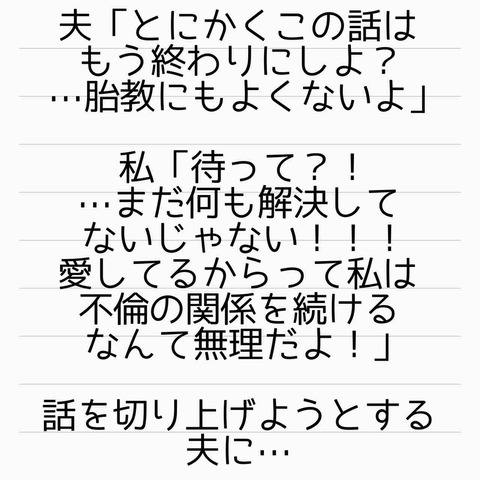 夫「とにかくこの話は
もう終わりにしよ？
…胎教にもよくないよ」
私「待って？！
…まだ何も解決して
ないじゃない！！！
愛してるからって私は
不倫の関係を続ける
なんて無理だよ！」
話を切り上げようとする
夫に…